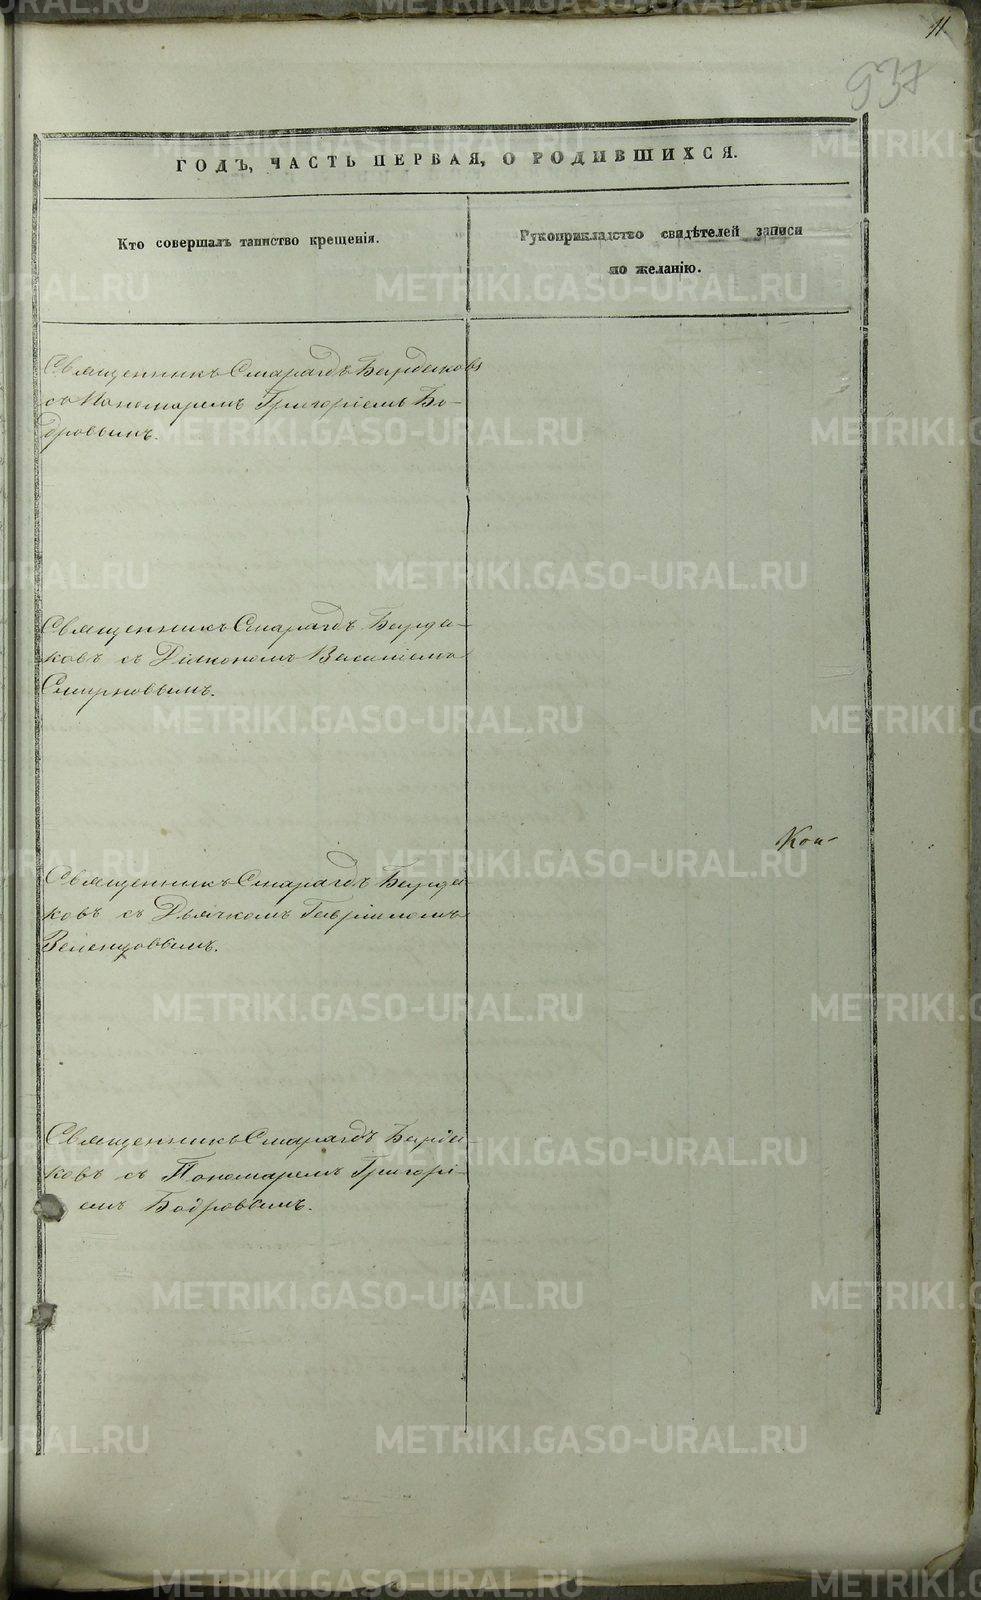 11.
937
ГОДЪ, ЧАСТЬ ПЕРВАЯ, О РОДИВШИХСЯ.
Кто совершалъ таинство крещенія.
Рукоприкладство свидѣтелей записи
по желанію.
Священникъ Смарагдъ Бирдюковъ
съ Пономаремъ Григоріемъ Бо-
дровымъ.
Священникъ Смарагдъ
ковъ съ Діякономъ Василіемъ
Смирновымъ.
Кон-
Священникъ Смарагдъ
ковъ съ Дьячкомъ Гавріиломъ
Зеленцовымъ.
Священникъ Смарагдъ
ковъ съ Пономаремъ Григорі-
емъ Бодровымъ.
METRIKI.GASO-URAL.RU